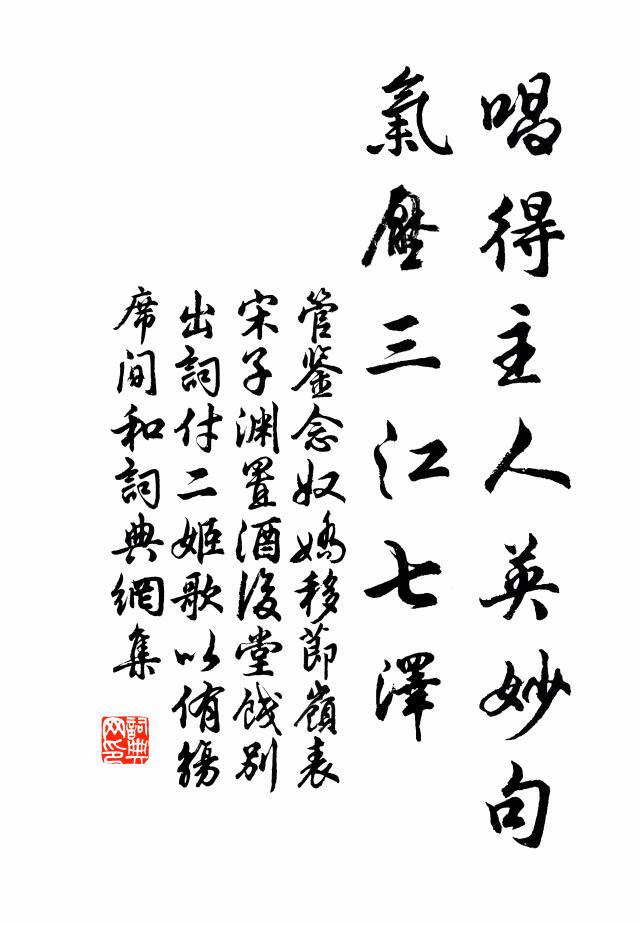 唱得主人英妙句
氣壓三江七澤
管鑒念奴嬌移節嶺表
宋子淵置酒後堂餞別
出詞付二姬歌以侑觴
席間和詞典網集
詞典網印